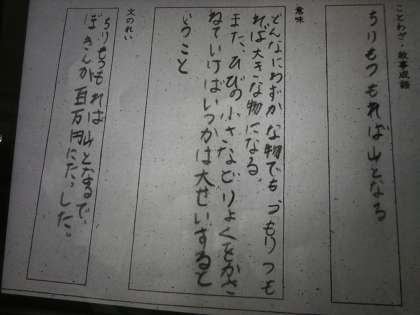 ことわざ・故事成語
ちりもつもれば山となる
意味
どんなにわずかな物でも、つもりつも
れば大きな物になる。
また、ひびの小さなどりょくをかさ
ねていけばいつかは大せいするで
いうこと
文のれい
ちりもつもれば山となるで、
ぼきんが百万円にたっした。